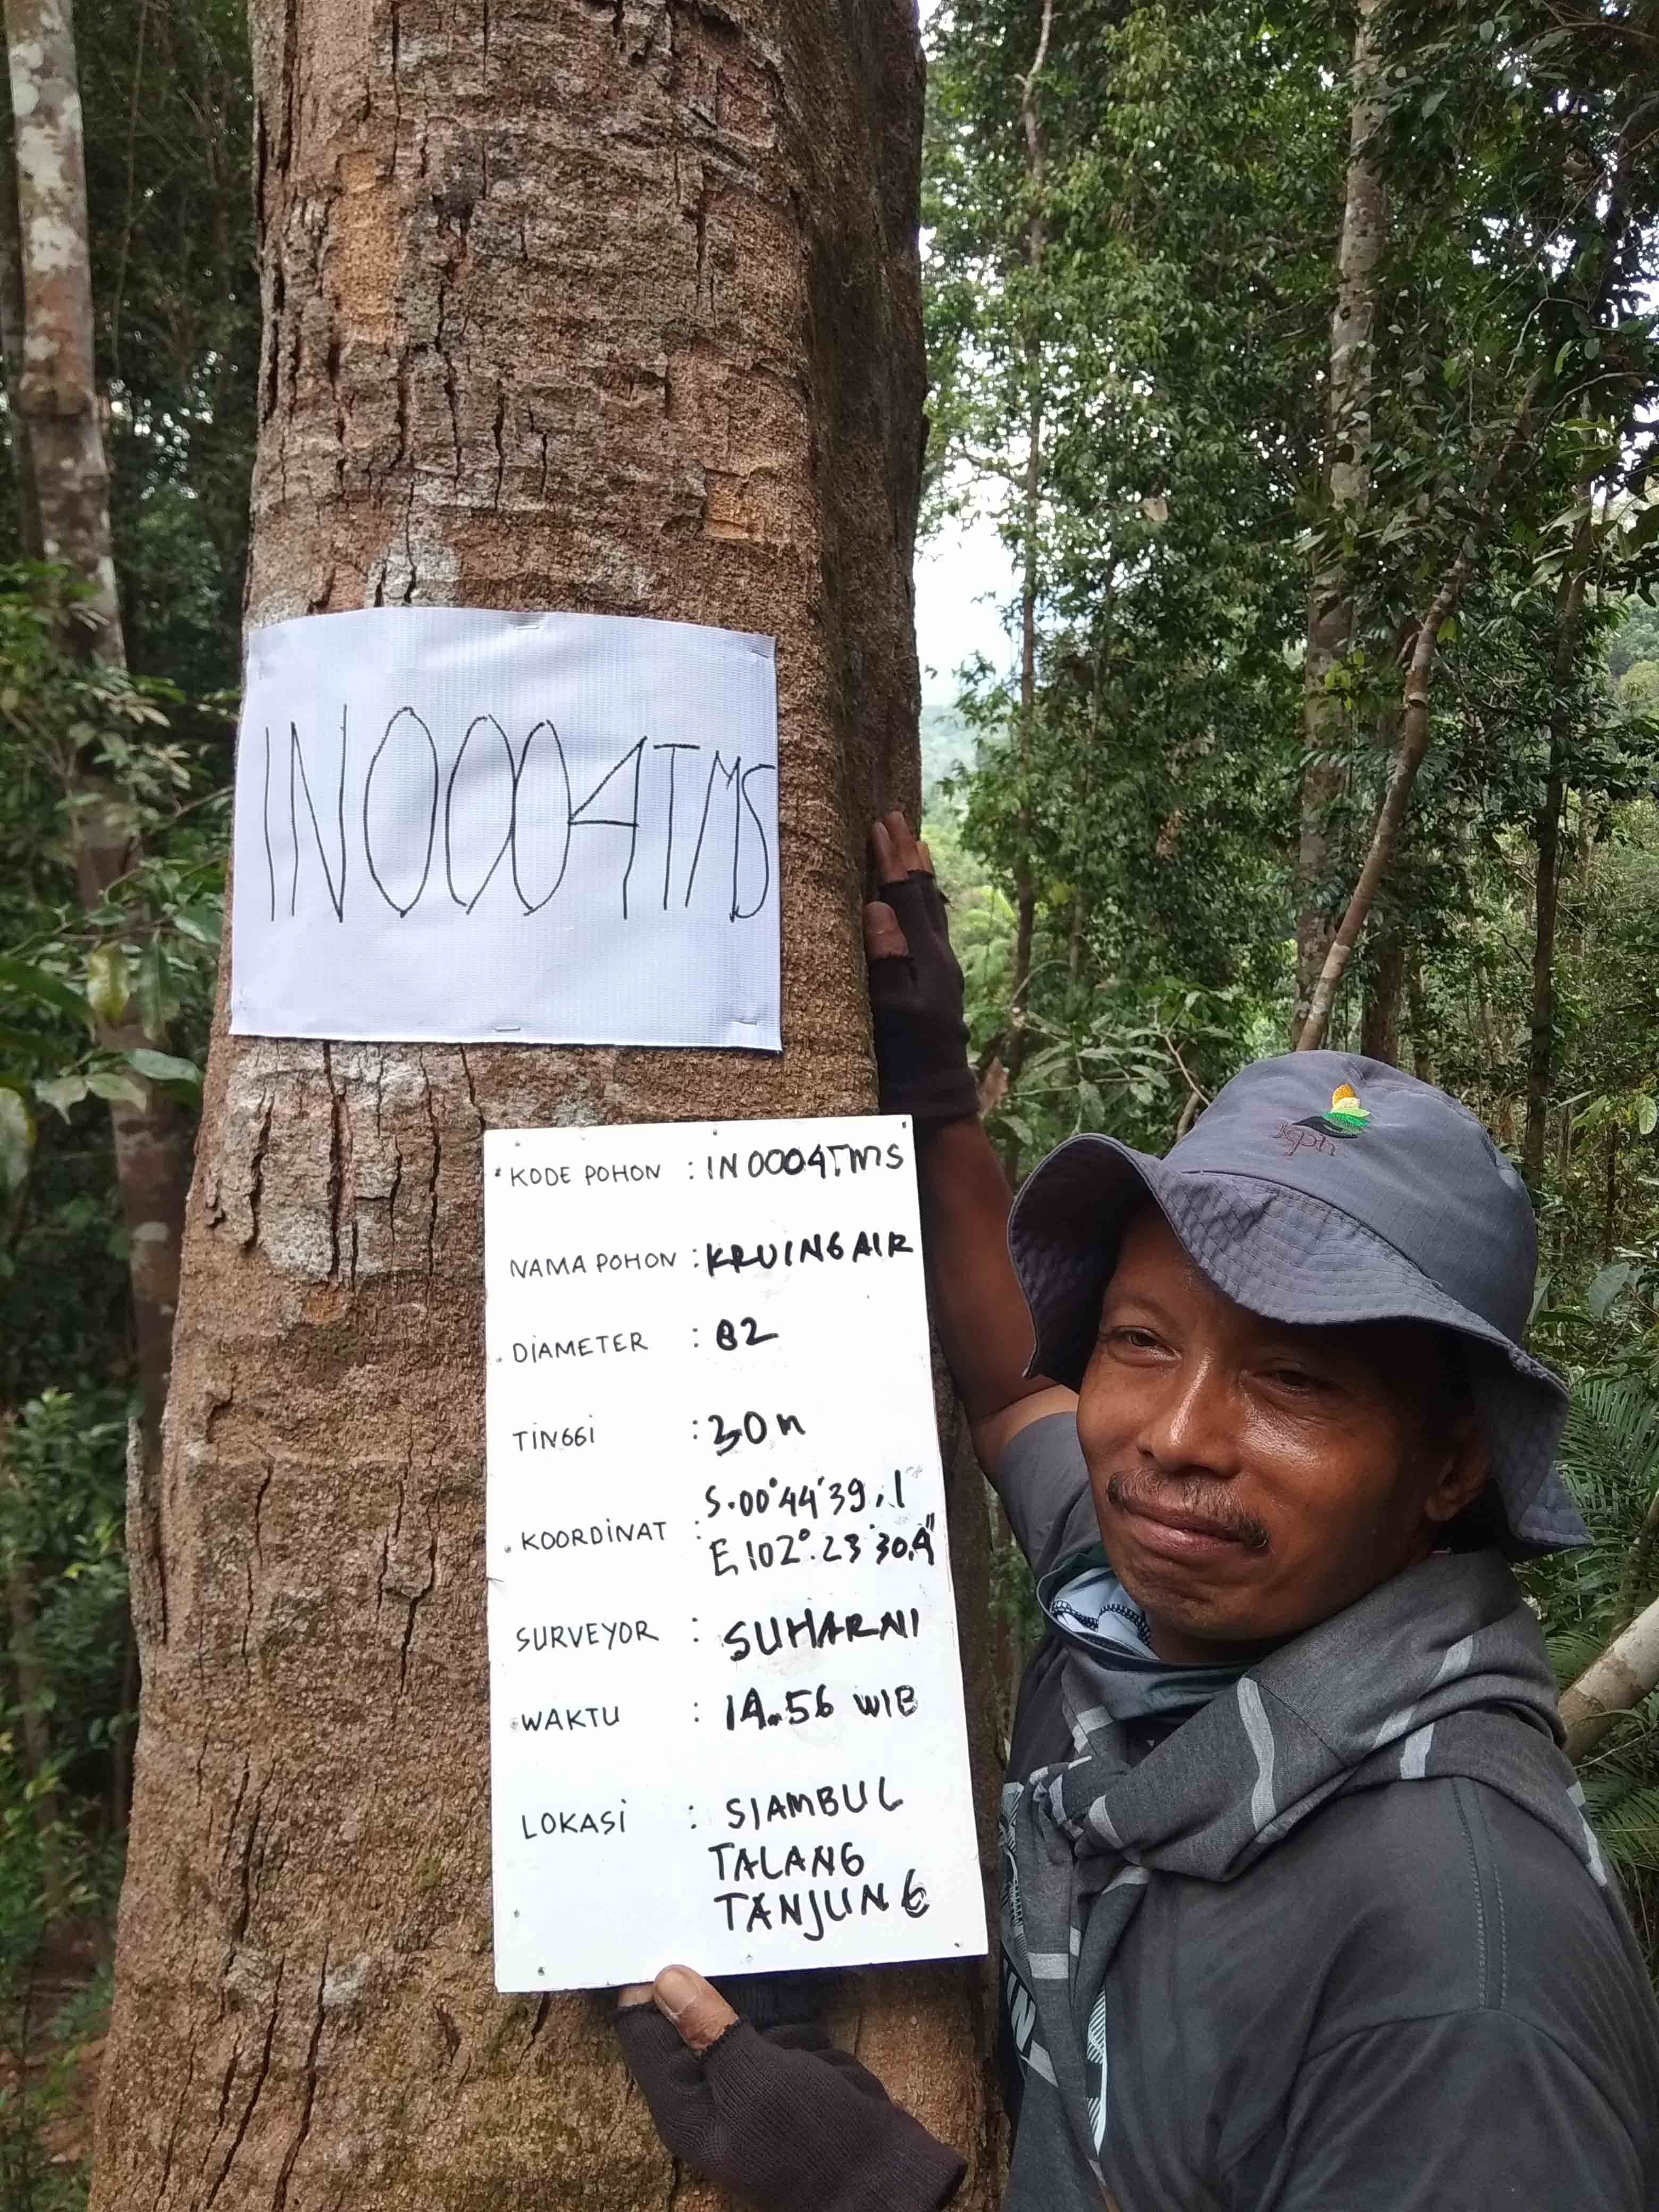 IN0004TMS
KODE POHON : IN0004TMS
NAMA POHON : KRUING AIR
DIAMETER : 82
TINGGI : 30 m
KOORDINAT : S.00°44'39,1"
E 102°.23'30.4"
SURVEYOR : SUHARNI
WAKTU : 14.56 WIB
LOKASI : SIAMBUL
TALANG
TANJUNG
kph